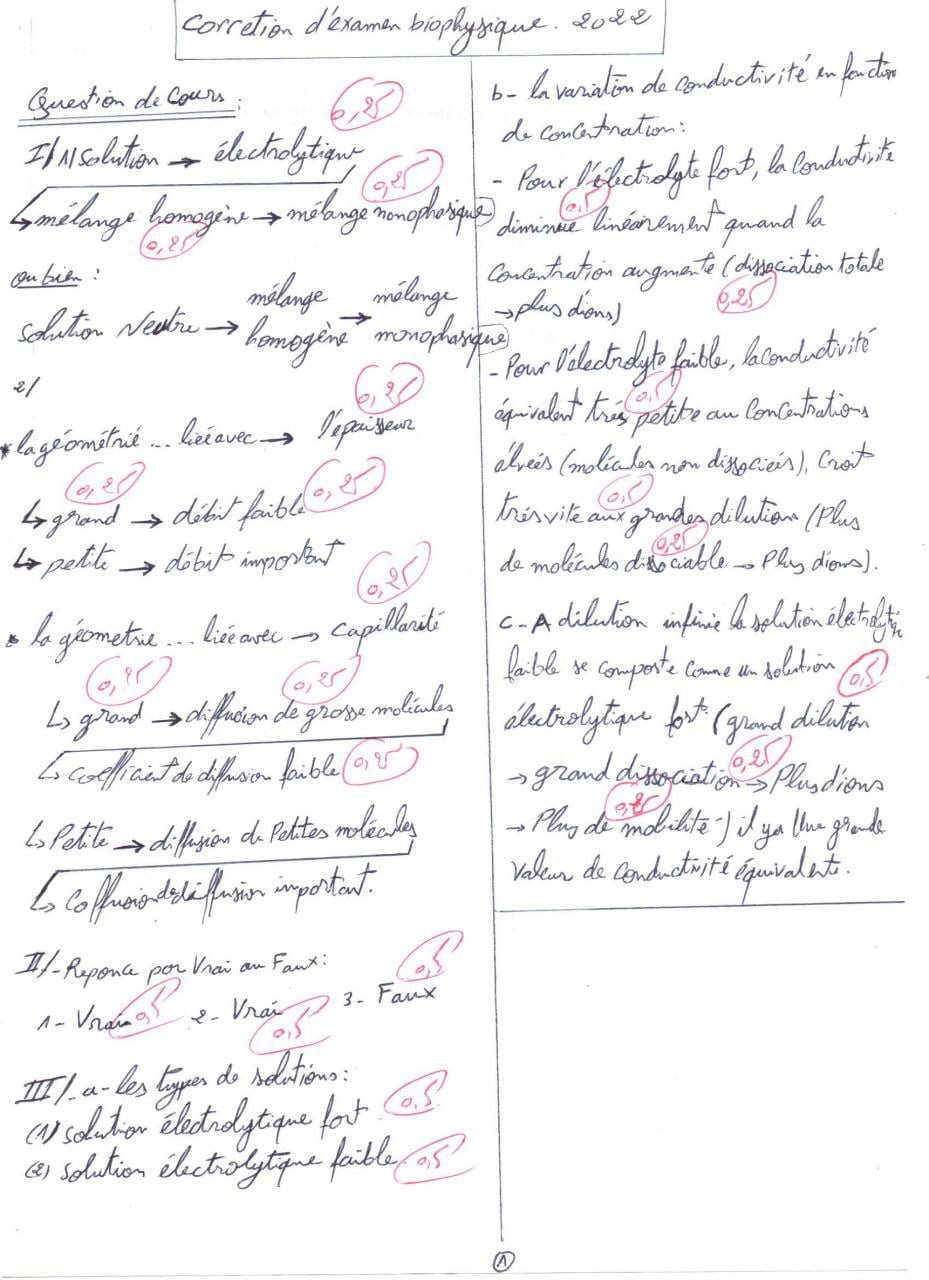 Corretion d'éxamen biophysique. 2022
Question de Cours :
0,25
I/ 1/ Solution → électrolytique
0,25
↳ mélange homogène → mélange monophasique
0,25
ou bien :
mélange mélange
Solution Neutre → homogène → monophasique
2/
0,25
* la géométrié ... liée avec → l'épaisseur
0,25 0,25
↳ grand → débit faible
↳ petite → débit important
0,25
• la géometrie ... liée avec → Capillarité
0,25 0,25
↳ grand → diffusion de grosse molécules
↳ coefficient de diffusion faible 0,25
↳ Petite → diffusion de Petites molécules
↳ Coffusion de diffusion important.
II/- Reponce por Vrai au Faux :
0,5
1 - Vrai 0,5 2 - Vrai 0,5 3 - Faux
III/ - a - les types de solutions :
(1) solution électrolytique fort 0,5
(2) solution électrolytique faible 0,5
b - la variation de conductivité en fonction
de concentration :
- Pour l'électrolyte fort, la conductivité
0,5
diminue linéairement quand la
Concentration augmente (dissociation totale
0,25
→ plus dions)
- Pour l'électrolyte faible, la conductivité
0,5
équivalent trés petite au Concentrations
álveés (molécules non dissocieés), Croit
0,5
trés vite aux grandes dilution (Plus
0,25
de molécules dissociable → Plus dions).
c - A dilution infinie la solution électrolytiq
faible se composte comme un solution 0,5
électrolytique fort (grand dilution
0,25
→ grand dissociation → Plus dions
0,25
→ Plus de mobilité) il ya Une grande
Valeur de Conductivité équivalente.
1